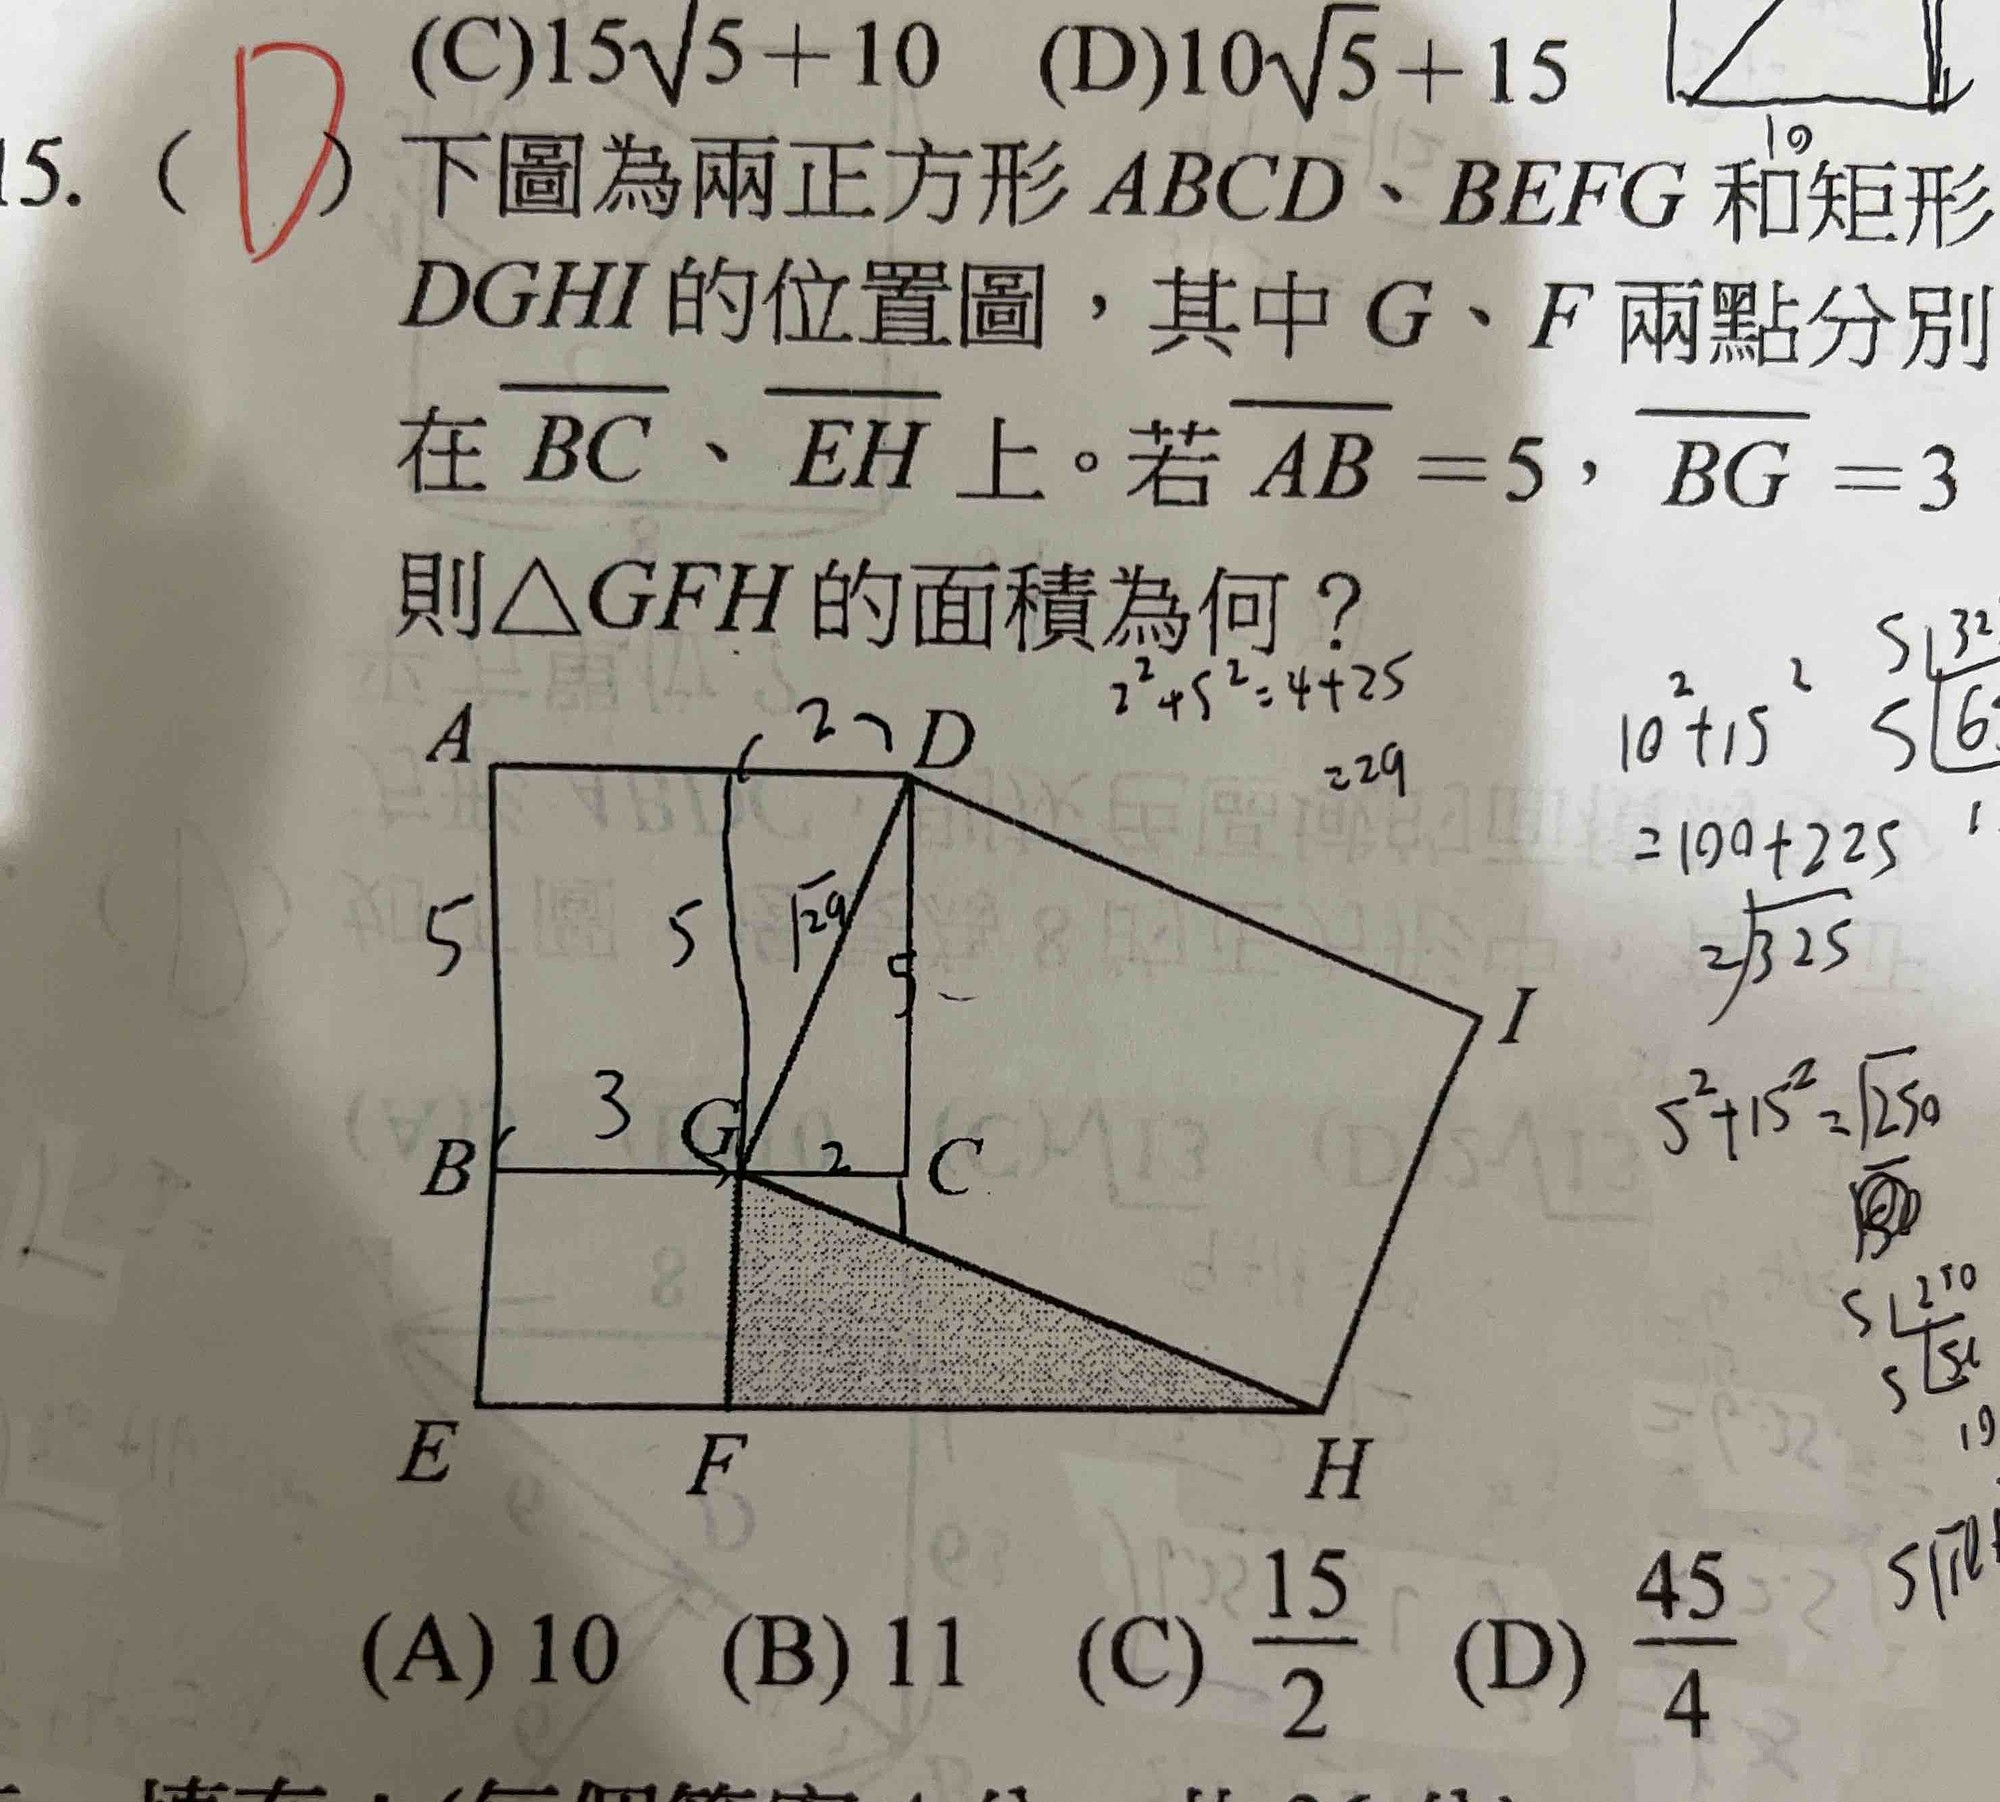 (C)15√5+10 (D)10√5+15
10
15. ( D ) 下圖為兩正方形 ABCD、BEFG 和矩形
DGHI 的位置圖,其中 G、F 兩點分別
在 BC、EH 上。若 AB=5,BG=3
則△GFH 的面積為何?
2²+5²=4+25
=29
10²+15²
=100+225
=√325
5²+15²=√250
A 2 D
5 5 √29 5
I
3 G 2
B C
E F H
(A) 10 (B) 11 (C) 15/2 (D) 45/4